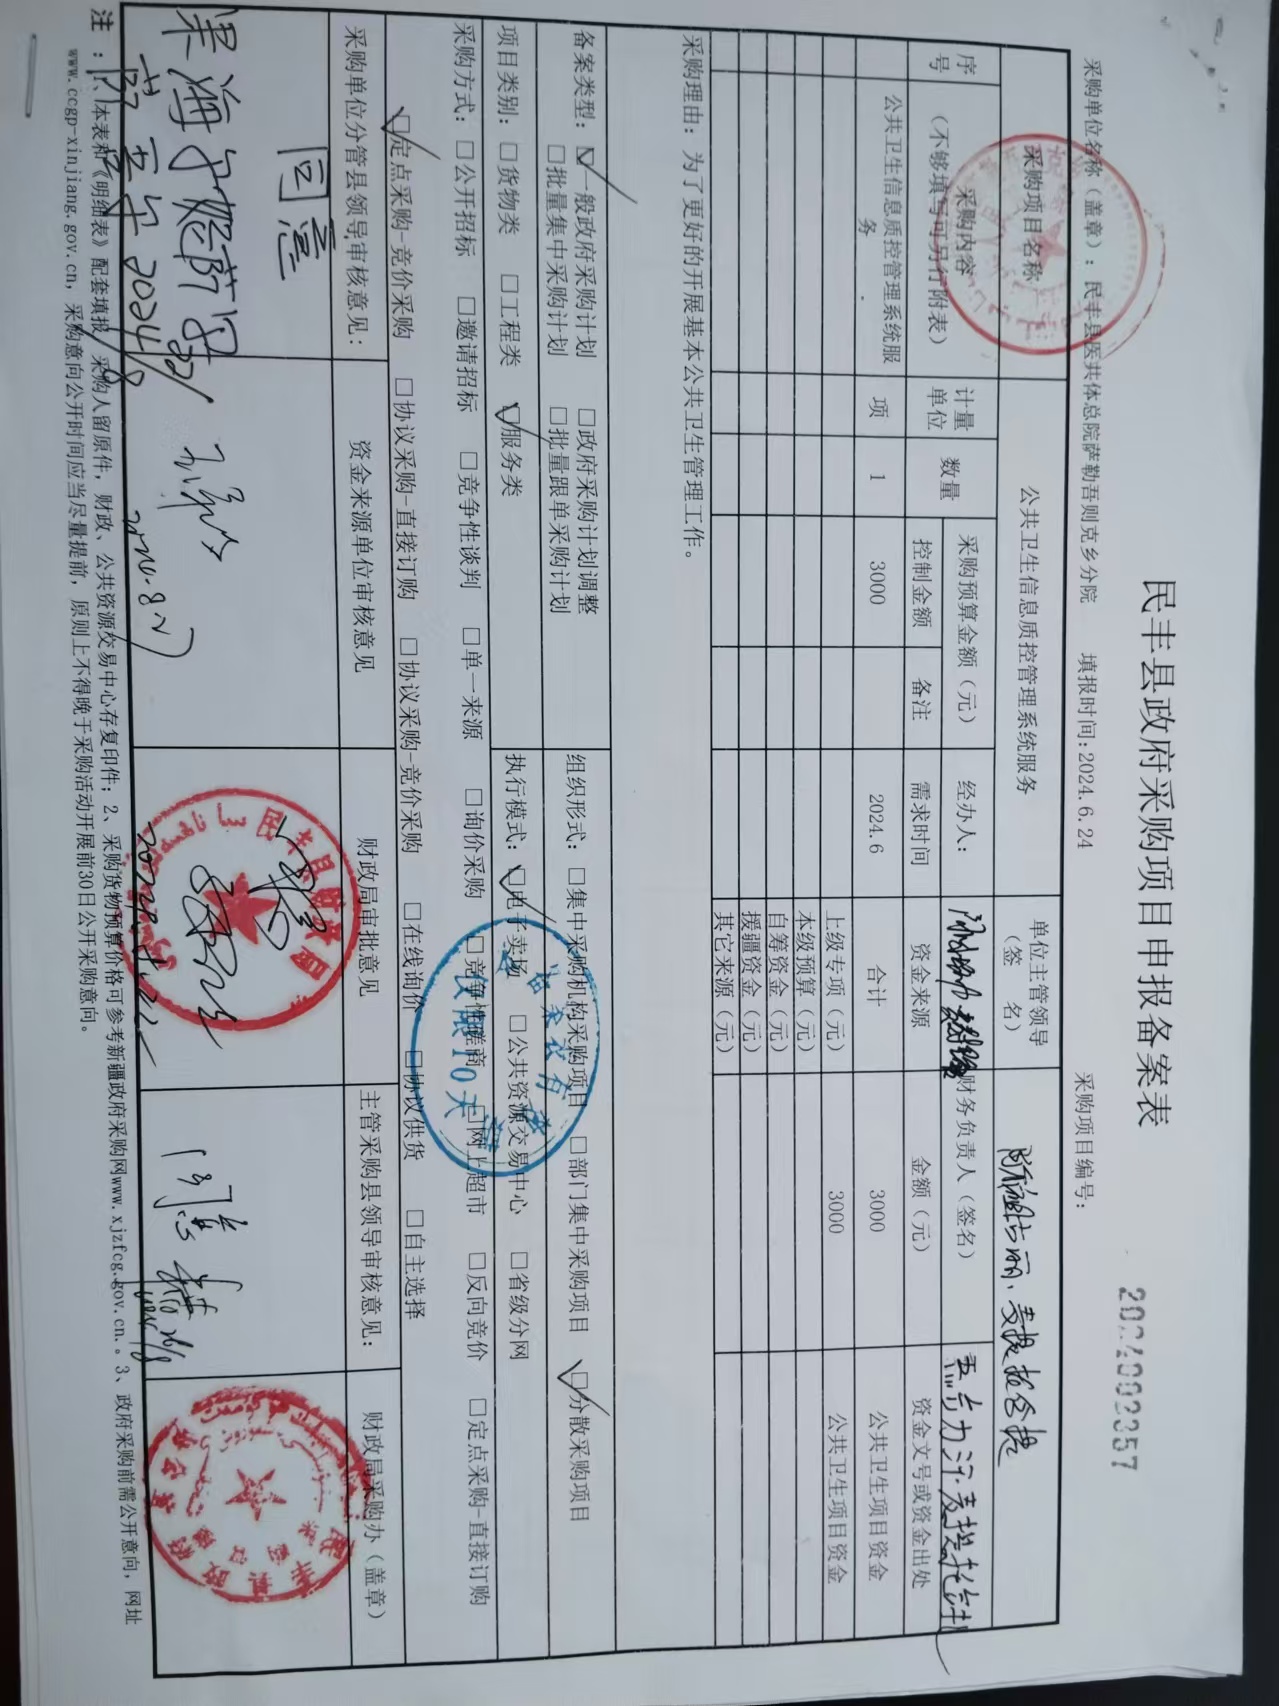 民丰县政府采购项目申报备案表
2024002357
采购单位名称（盖章）：民丰县医共体总院萨勒吾则克乡分院 填报时间:2024.6.24 采购项目编号:
采购项目名称 公共卫生信息质控管理系统服务 单位主管领导（签 名）
序号 采购内容（不够填写可另行附表） 计量单位 数量 采购预算金额（元） 经办人: 财务负责人（签名）
控制金额 备注 需求时间 资金来源 金额（元） 资金文号或资金出处
公共卫生信息质控管理系统服务 项 1 3000 2024.6 合计 3000 公共卫生项目资金
上级专项（元） 3000 公共卫生项目资金
本级预算（元）
自筹资金（元）
援疆资金（元）
其它来源（元）
采购理由：为了更好的开展基本公共卫生管理工作。
备案类型: ☑一般政府采购计划 □政府采购计划调整
□批量集中采购计划 □批量跟单采购计划
组织形式: □集中采购机构采购项目 □部门集中采购项目 ☑分散采购项目
项目类别: □货物类 □工程类 ☑服务类
执行模式: ☑电子卖场 □公共资源交易中心 □省级分网
采购方式: □公开招标 □邀请招标 □竞争性谈判 □单一来源 □询价采购 □竞争性磋商 □网上超市 □反向竞价 □定点采购-直接订购
☑定点采购-竞价采购 □协议采购-直接订购 □协议采购-竞价采购 □在线询价 □协议供货 □自主选择
仅限10天
采购单位分管县领导审核意见: 资金来源单位审核意见 财政局审批意见 主管采购县领导审核意见: 财政局采购办（盖章）
同意
2024.8.27
注：1、本表和《明细表》配套填报，采购人留原件，财政、公共资源交易中心存复印件；2、采购货物预算价格可参考新疆政府采购网www.xjzfcg.gov.cn.。3、政府采购前需公开意向，网址
www.ccgp-xinjiang.gov.cn，采购意向公开时间应当尽量提前，原则上不得晚于采购活动开展前30日公开采购意向。